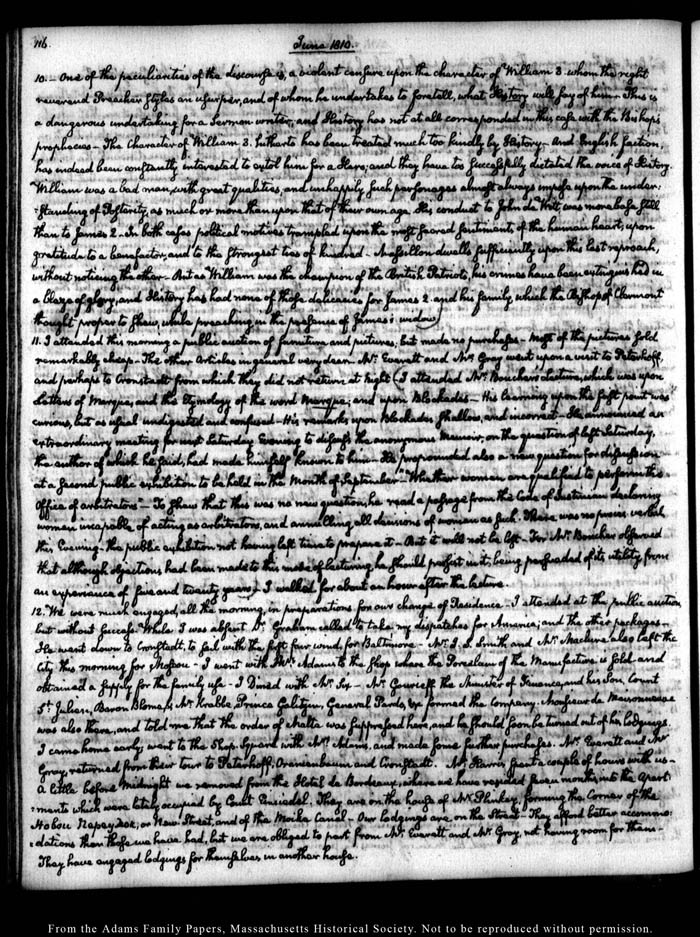 116.
June 1810.
10. — One of the peculiarities of the discourse is, a violent censure upon the character of William 3. whom the right
reverend Preacher styles an usurper, and of whom he undertakes to foretell, what History will say of him. This is
a dangerous undertaking for a Sermon writer, and History has not at all corresponded in this case with the Bishop's
prophecies — The Character of William 3. hitherto has been treated much too kindly by History — And English faction,
has indeed been constantly interested to extol him for a Hero; and they have too successfully dictated the voice of History.
William was a bad man, with great qualities, and unhappily such personages almost always impose upon the under-
-standing of Posterity, as much or more than upon that of their own age. His conduct to John de Witt was more base still
than to James 2. In both cases political motives trampled upon the most sacred sentiments of the human heart; upon
gratitude to a benefactor, and to the strongest ties of kindred — Massillon dwells sufficiently upon this last reproach,
without noticing the other. But as William was the champion of the British Patriots, his crimes have been extinguished in
a blaze of glory, and History has had none of those delicacies for James 2. and his family, which the Bishop of Clermont
thought proper to shew, while preaching in the presence of James's widow
11. I attended this morning a public auction of furniture and pictures, but made no purchase. Most of the pictures sold
remarkably cheap — The other Articles in general very dear — Mr. Everett and Mr. Gray went upon a visit to Peterhoff,
and perhaps to Cronstadt from which they did not return at night. I attended Mr. Boucher's lecture, which was upon
Letters of Marque, and the Etymology of the word Marque; and upon Blockades — His learning upon the first point was
curious, but as usual undigested and confused — His remarks upon Blockades shallow, and incorrect — He announced an
extraordinary meeting for next Saturday Evening to discuss the anonymous Memoir, on the question of last Saturday,
the author of which he said, had made himself known to him — He propounded also a new question for discussion
at a second public exhibition to be held in the Month of September — "Whether women are qualified to perform the
Office of arbitrators — To shew that this was no new question, he read a passage from the Code of Justinian declaring
women incapable of acting as arbitrators, and annulling all decisions of women as such. There was no proces verbal
this Evening — the public exhibition not having left time to prepare it — But it will not be lost — For Mr. Boucher observed
that although objections had been made to this mode of lecturing, he should persist in it, being persuaded of its utility, from
an experience of five and twenty years — I walked for about an hour after the lecture.
12. We were much engaged, all the morning, in preparations for our change of Residence — I attended at the public auction,
but without success. While I was absent Dr. Graham called to take my dispatches for America; and the other packages —
He went down to Cronstadt, to sail with the first fair wind, for Baltimore — Mr. J. S. Smith and Mr. also left the
City this morning for Moscou — I went with Mrs. Adams to the shop where the Porcelain of the Manufacture is sold — and
obtained a supply for the family use — I Dined with Mr. Six — Mr. Gourieff the Minister of Finance, and his Son, Count
St. Julien, Baron Blome, Mr. Krabbe, Prince Galitzin, General Pardo, &c formed the company. Monsieur de Maisonneuve
was also there, and told me that the order of Malta was suppressed here, and he should soon be turned out of his lodgings.
I came home early, went to the Shop with Mrs. Adams, and made some further purchases. Mr. Everett and Mr.
Gray, returned from their tour to Peterhoff, Oranienbaum and Cronstadt. Mr. Harris, spent a couple of hours with us —
A little before Midnight we removed from the Hotel de Bordeaux, where we have resided seven months, into the apart-
-ments which were lately occupied by Count They are on the house of Mr. forming the Corner of the
or New Street, and of the Moika Canal — Our lodgings are on the Street — They afford better accommo-
-dations than those we have had, but we are obliged to part from Mr. Everett and Mr. Gray, not having room for them —
They have engaged lodgings for themselves in another house.
From the Adams Family Papers, Massachusetts Historical Society. Not to be reproduced without permission.